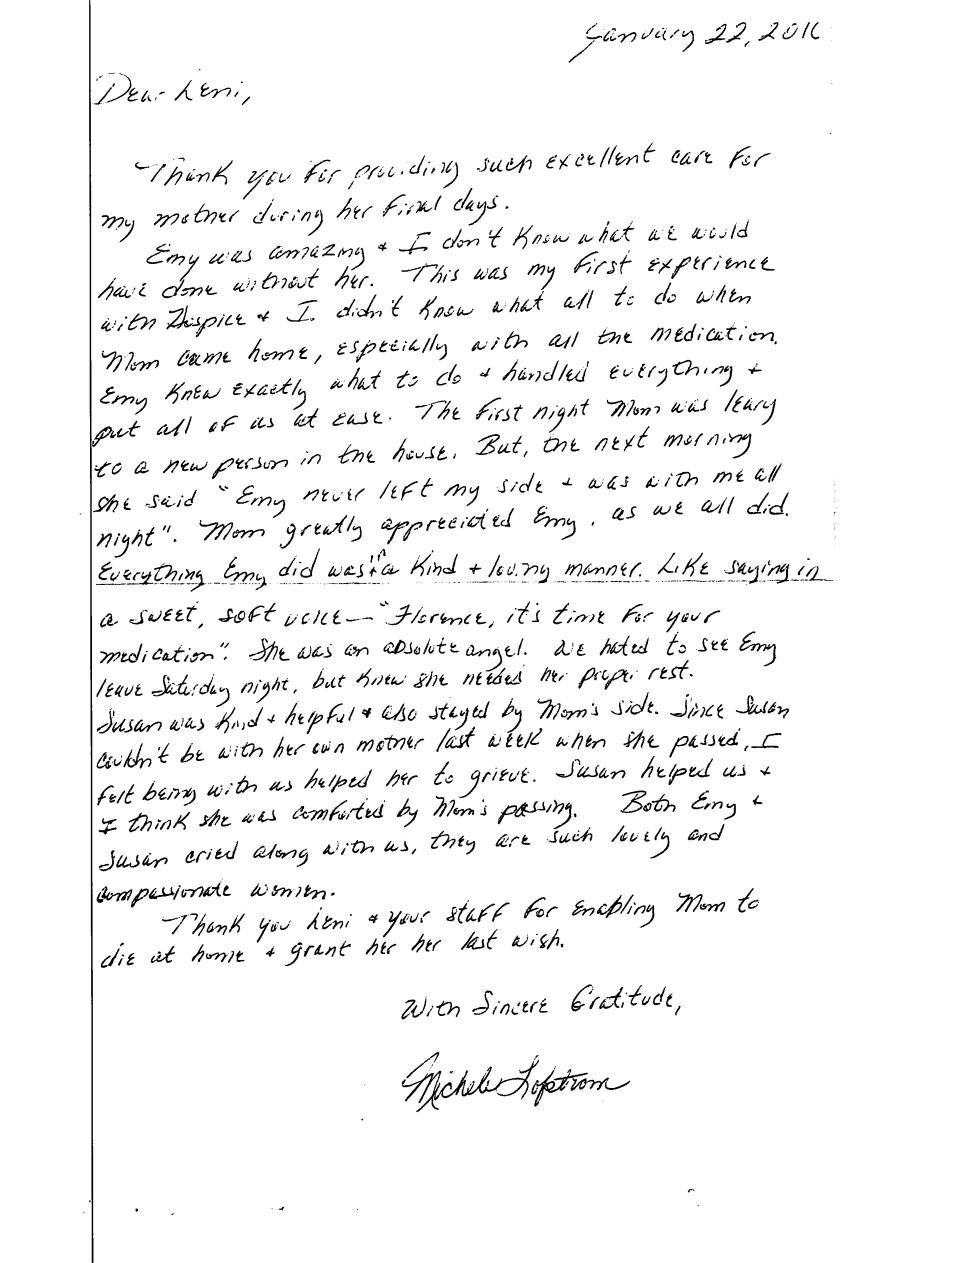 January 22, 2016
Dear Leni,
Thank you for providing such excellent care for
my mother during her final days.
Emy was amazing + I don't know what we would
have done without her. This was my first experience
with Hospice + I didn't know what all to do when
Mom came home, especially with all the medication.
Emy knew exactly what to do + handled everything +
put all of us at ease. The first night Mom was leary
to a new person in the house. But, the next morning
she said "Emy never left my side + was with me all
night". Mom greatly appreciated Emy, as we all did.
Everything Emy did was in a kind + loving manner. Like saying in
a sweet, soft voice — "Florence, it's time for your
medication". She was an absolute angel. We hated to see Emy
leave Saturday night, but knew she needed her proper rest.
Susan was kind + helpful + also stayed by Mom's side. Since Susan
couldn't be with her own mother last week when she passed, I
felt being with us helped her to grieve. Susan helped us +
I think she was comforted by Mom's passing. Both Emy +
Susan cried along with us, they are such lovely and
compassionate women.
Thank you Leni + your staff for enabling Mom to
die at home + grant her her last wish.
With Sincere Gratitude,
Michele Lofstrom